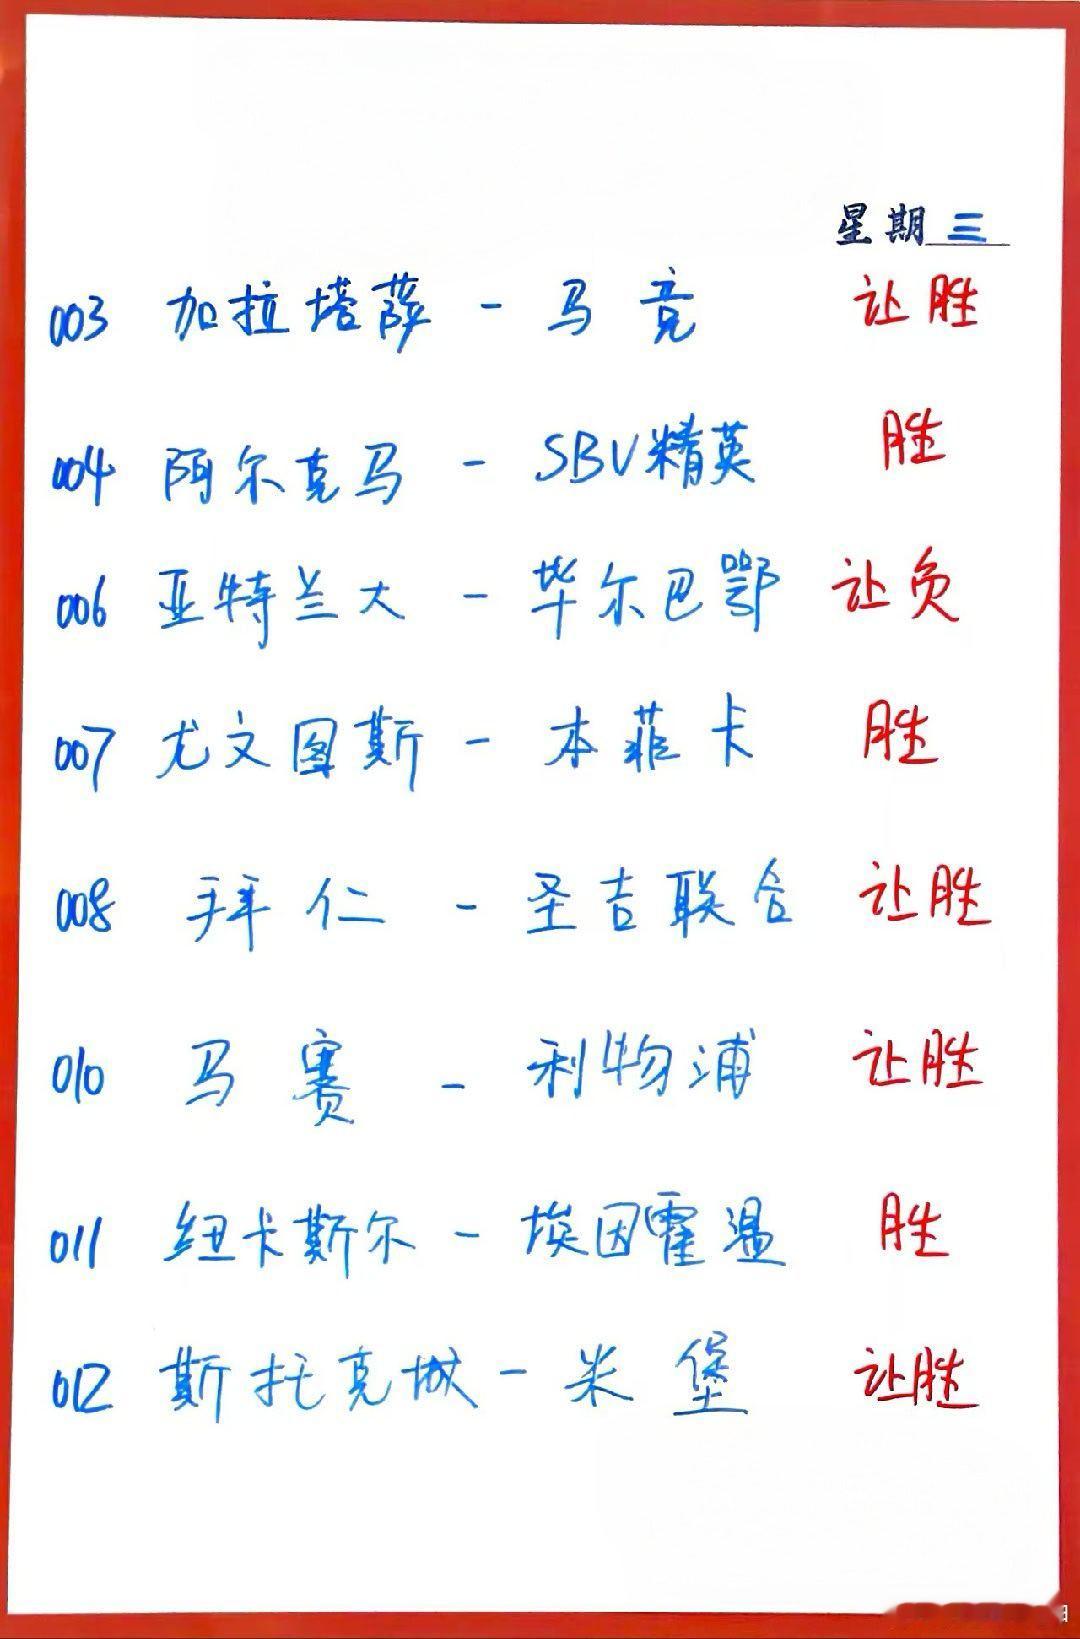 星期三
003 加拉塔萨 - 马竞 让胜
004 阿尔克马 - SBV精英 胜
006 亚特兰大 - 毕尔巴鄂 让负
007 尤文图斯 - 本菲卡 胜
008 拜仁 - 圣吉联合 让胜
010 马赛 - 利物浦 让胜
011 纽卡斯尔 - 埃因霍温 胜
012 斯托克城 - 米堡 让胜